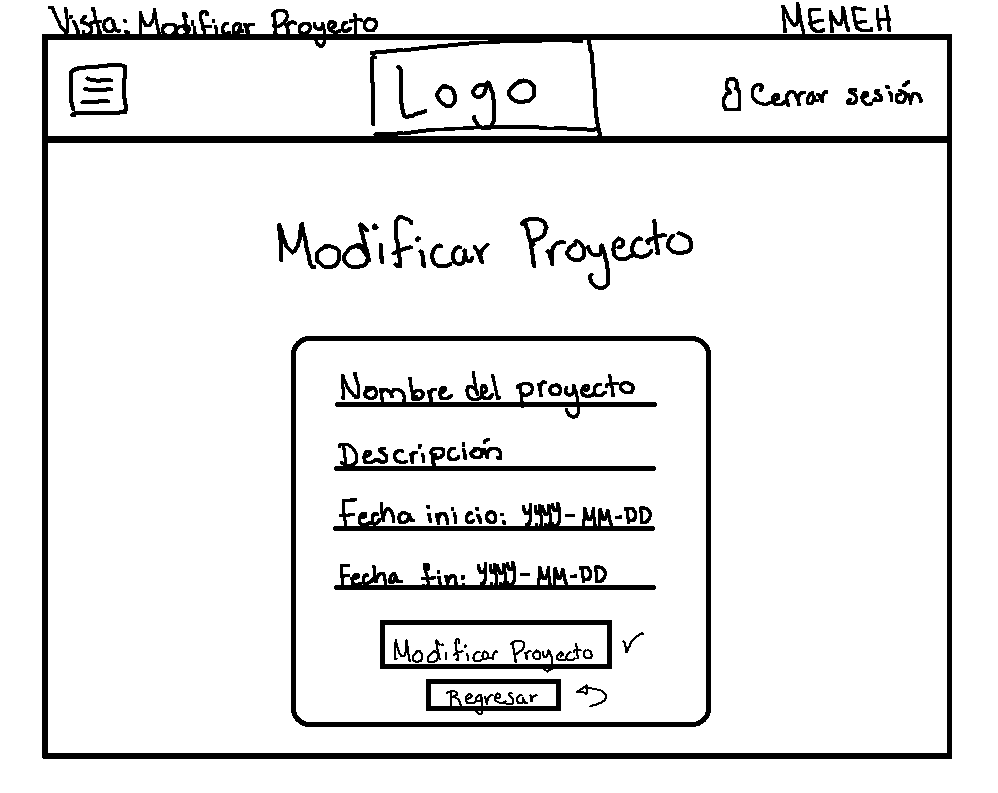 Vista: Modificar Proyecto
MEMEH
Logo
Cerrar sesión
Modificar Proyecto
Nombre del proyecto
Descripción
Fecha inicio: yyyy-MM-DD
Fecha fin: yyyy-MM-DD
Modificar Proyecto
Regresar